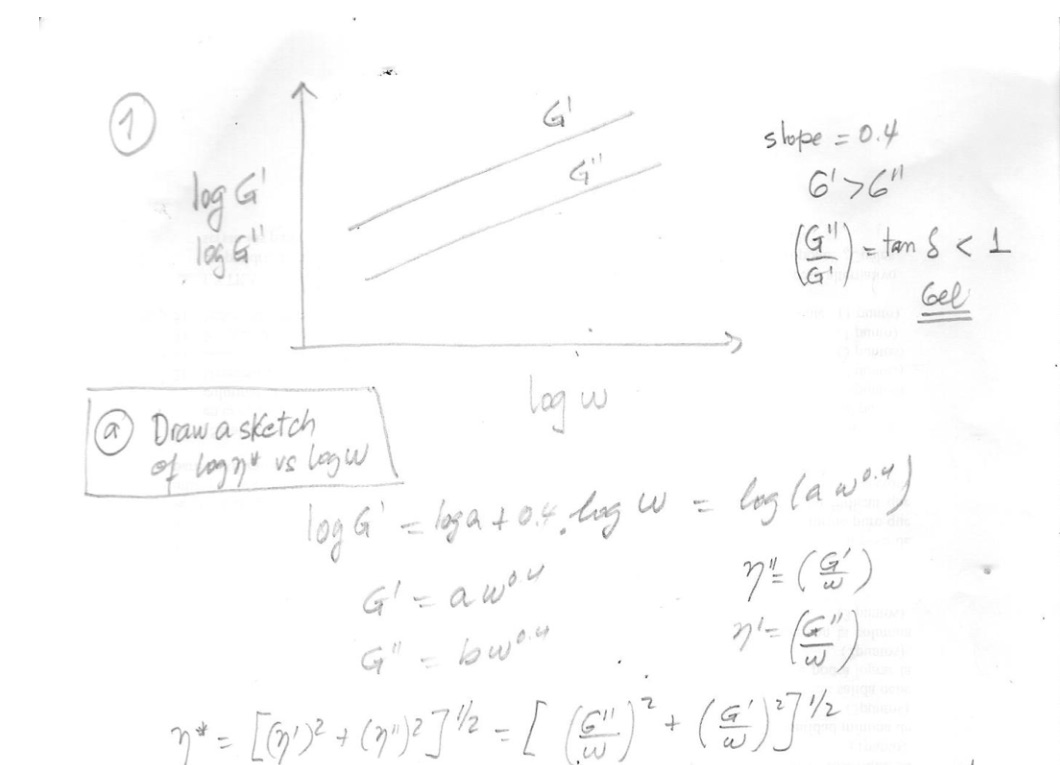 ①
G'
G''
log G'
log G''
log ω
slope = 0.4
G' > G''
(G''/G') = tan δ < 1
Gel
ⓐ Draw a sketch
of log η* vs log ω
log G' = log a + 0.4 . log ω = log (a ω^0.4)
G' = a ω^0.4
η'' = (G'/ω)
G'' = b ω^0.4
η' = (G''/ω)
η* = [(η')² + (η'')²]^1/2 = [(G''/ω)² + (G'/ω)²]^1/2